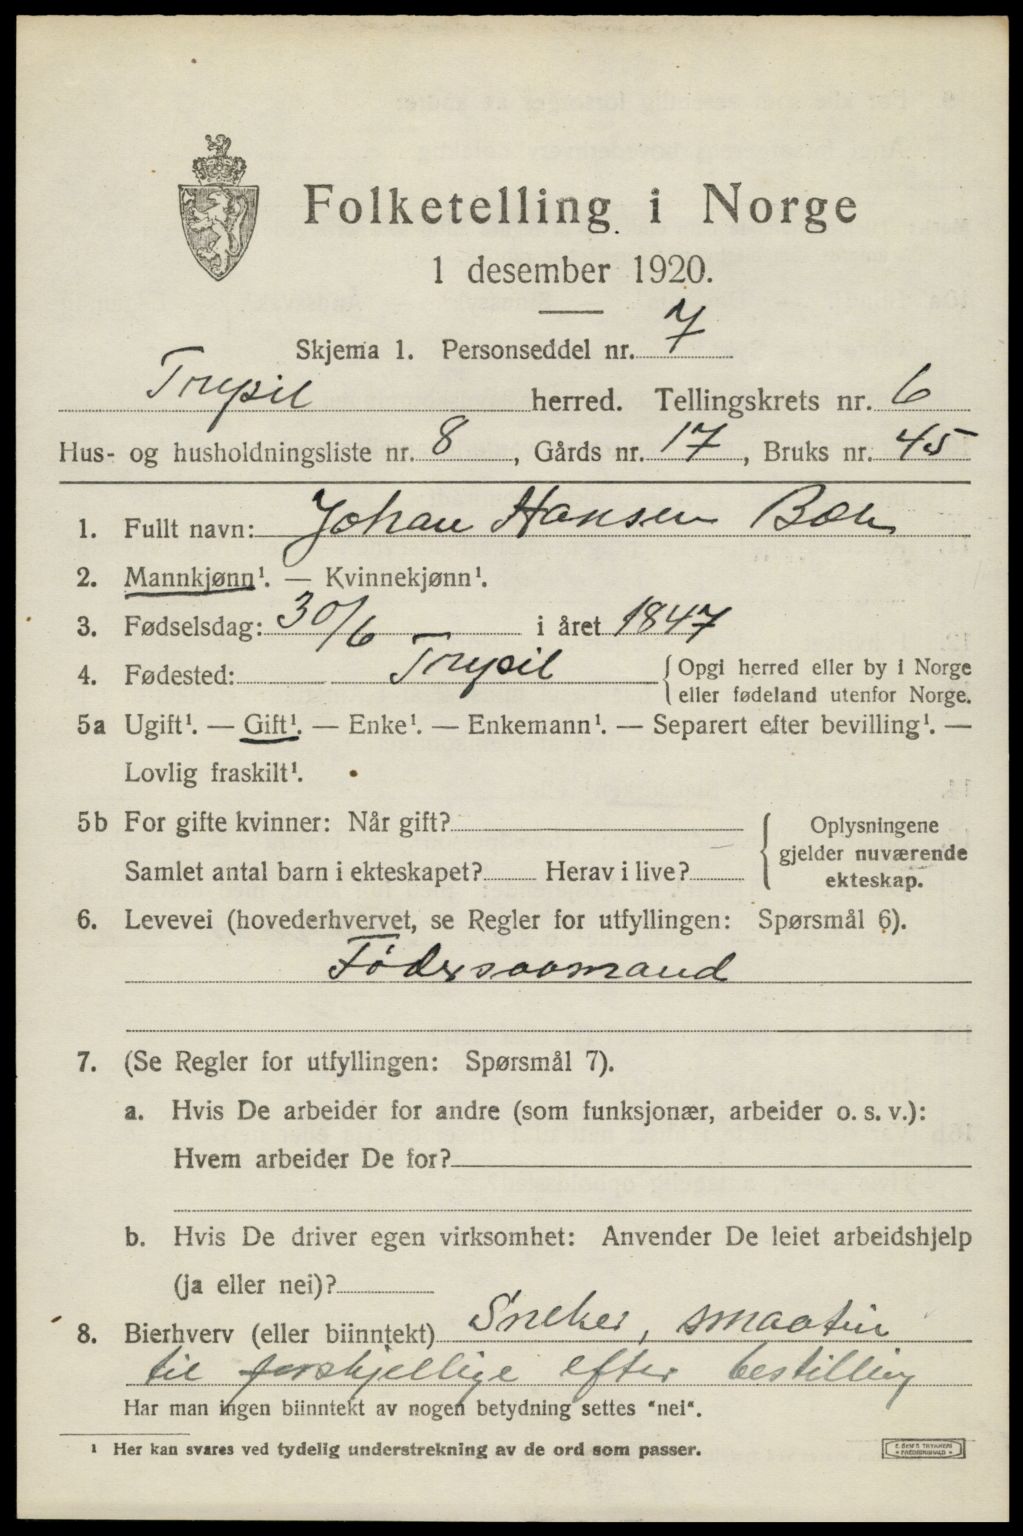 Folketelling i Norge
1 desember 1920.
Skjema 1. Personseddel nr. 7
Trysil herred. Tellingskrets nr. 6
Hus- og husholdningsliste nr. 8, Gårds nr. 17, Bruks nr. 45
1. Fullt navn: Johan Hansen
2. Mannkjønn¹. — Kvinnekjønn¹.
3. Fødselsdag: 30/6 i året 1847
4. Fødested: Trysil { Opgi herred eller by i Norge
eller fødeland utenfor Norge.
5a Ugift¹. — Gift¹. — Enke¹. — Enkemann¹. — Separert efter bevilling¹. —
Lovlig fraskilt¹.
5b For gifte kvinner: Når gift? { Oplysningene
gjelder nuværende
Samlet antal barn i ekteskapet? Herav i live? ekteskap.
6. Levevei (hovederhvervet, se Regler for utfyllingen: Spørsmål 6).
Föderaamand
7. (Se Regler for utfyllingen: Spørsmål 7).
a. Hvis De arbeider for andre (som funksjonær, arbeider o. s. v.):
Hvem arbeider De for?
b. Hvis De driver egen virksomhet: Anvender De leiet arbeidshjelp
(ja eller nei)?
8. Bierhverv (eller biinntekt) Sneker, smaatin
til forskjellige efter bestilling
Har man ingen biinntekt av nogen betydning settes "nei".
¹ Her kan svares ved tydelig understrekning av de ord som passer.